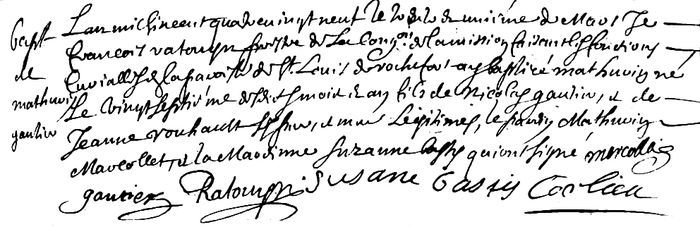 bapt
de
mathurin
gautier
L'an mil six cent quatre vingt neuf le
francois ratouyn prestre de la Congon de la mission faisant les fonctions
Curialles de la paroisse de St Louis de rochefort ay baptisé mathurin né
Le vingt septieme desdits mois et an fils de Nicolas gautier, et de
Jeanne rouhault et mere Legitimes, le parin Mathurin
Marcollet, et la Mardinne Suzanne qui ont signé mercollet
gautier Ratouyn Susane Gassis